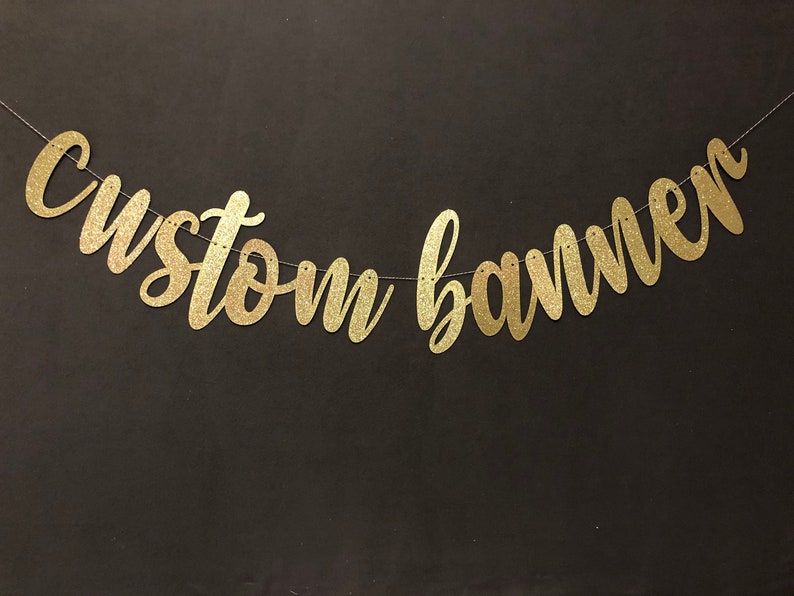 custom banner